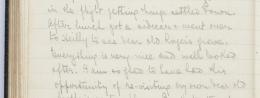 in the flight getting things settled down
After lunch got a sidecar & went over
to Mully to see dear old Roger's grave.
Everything is very nice and well looked
after. I am so glad to have had this
opportunity of re-visiting my dear old